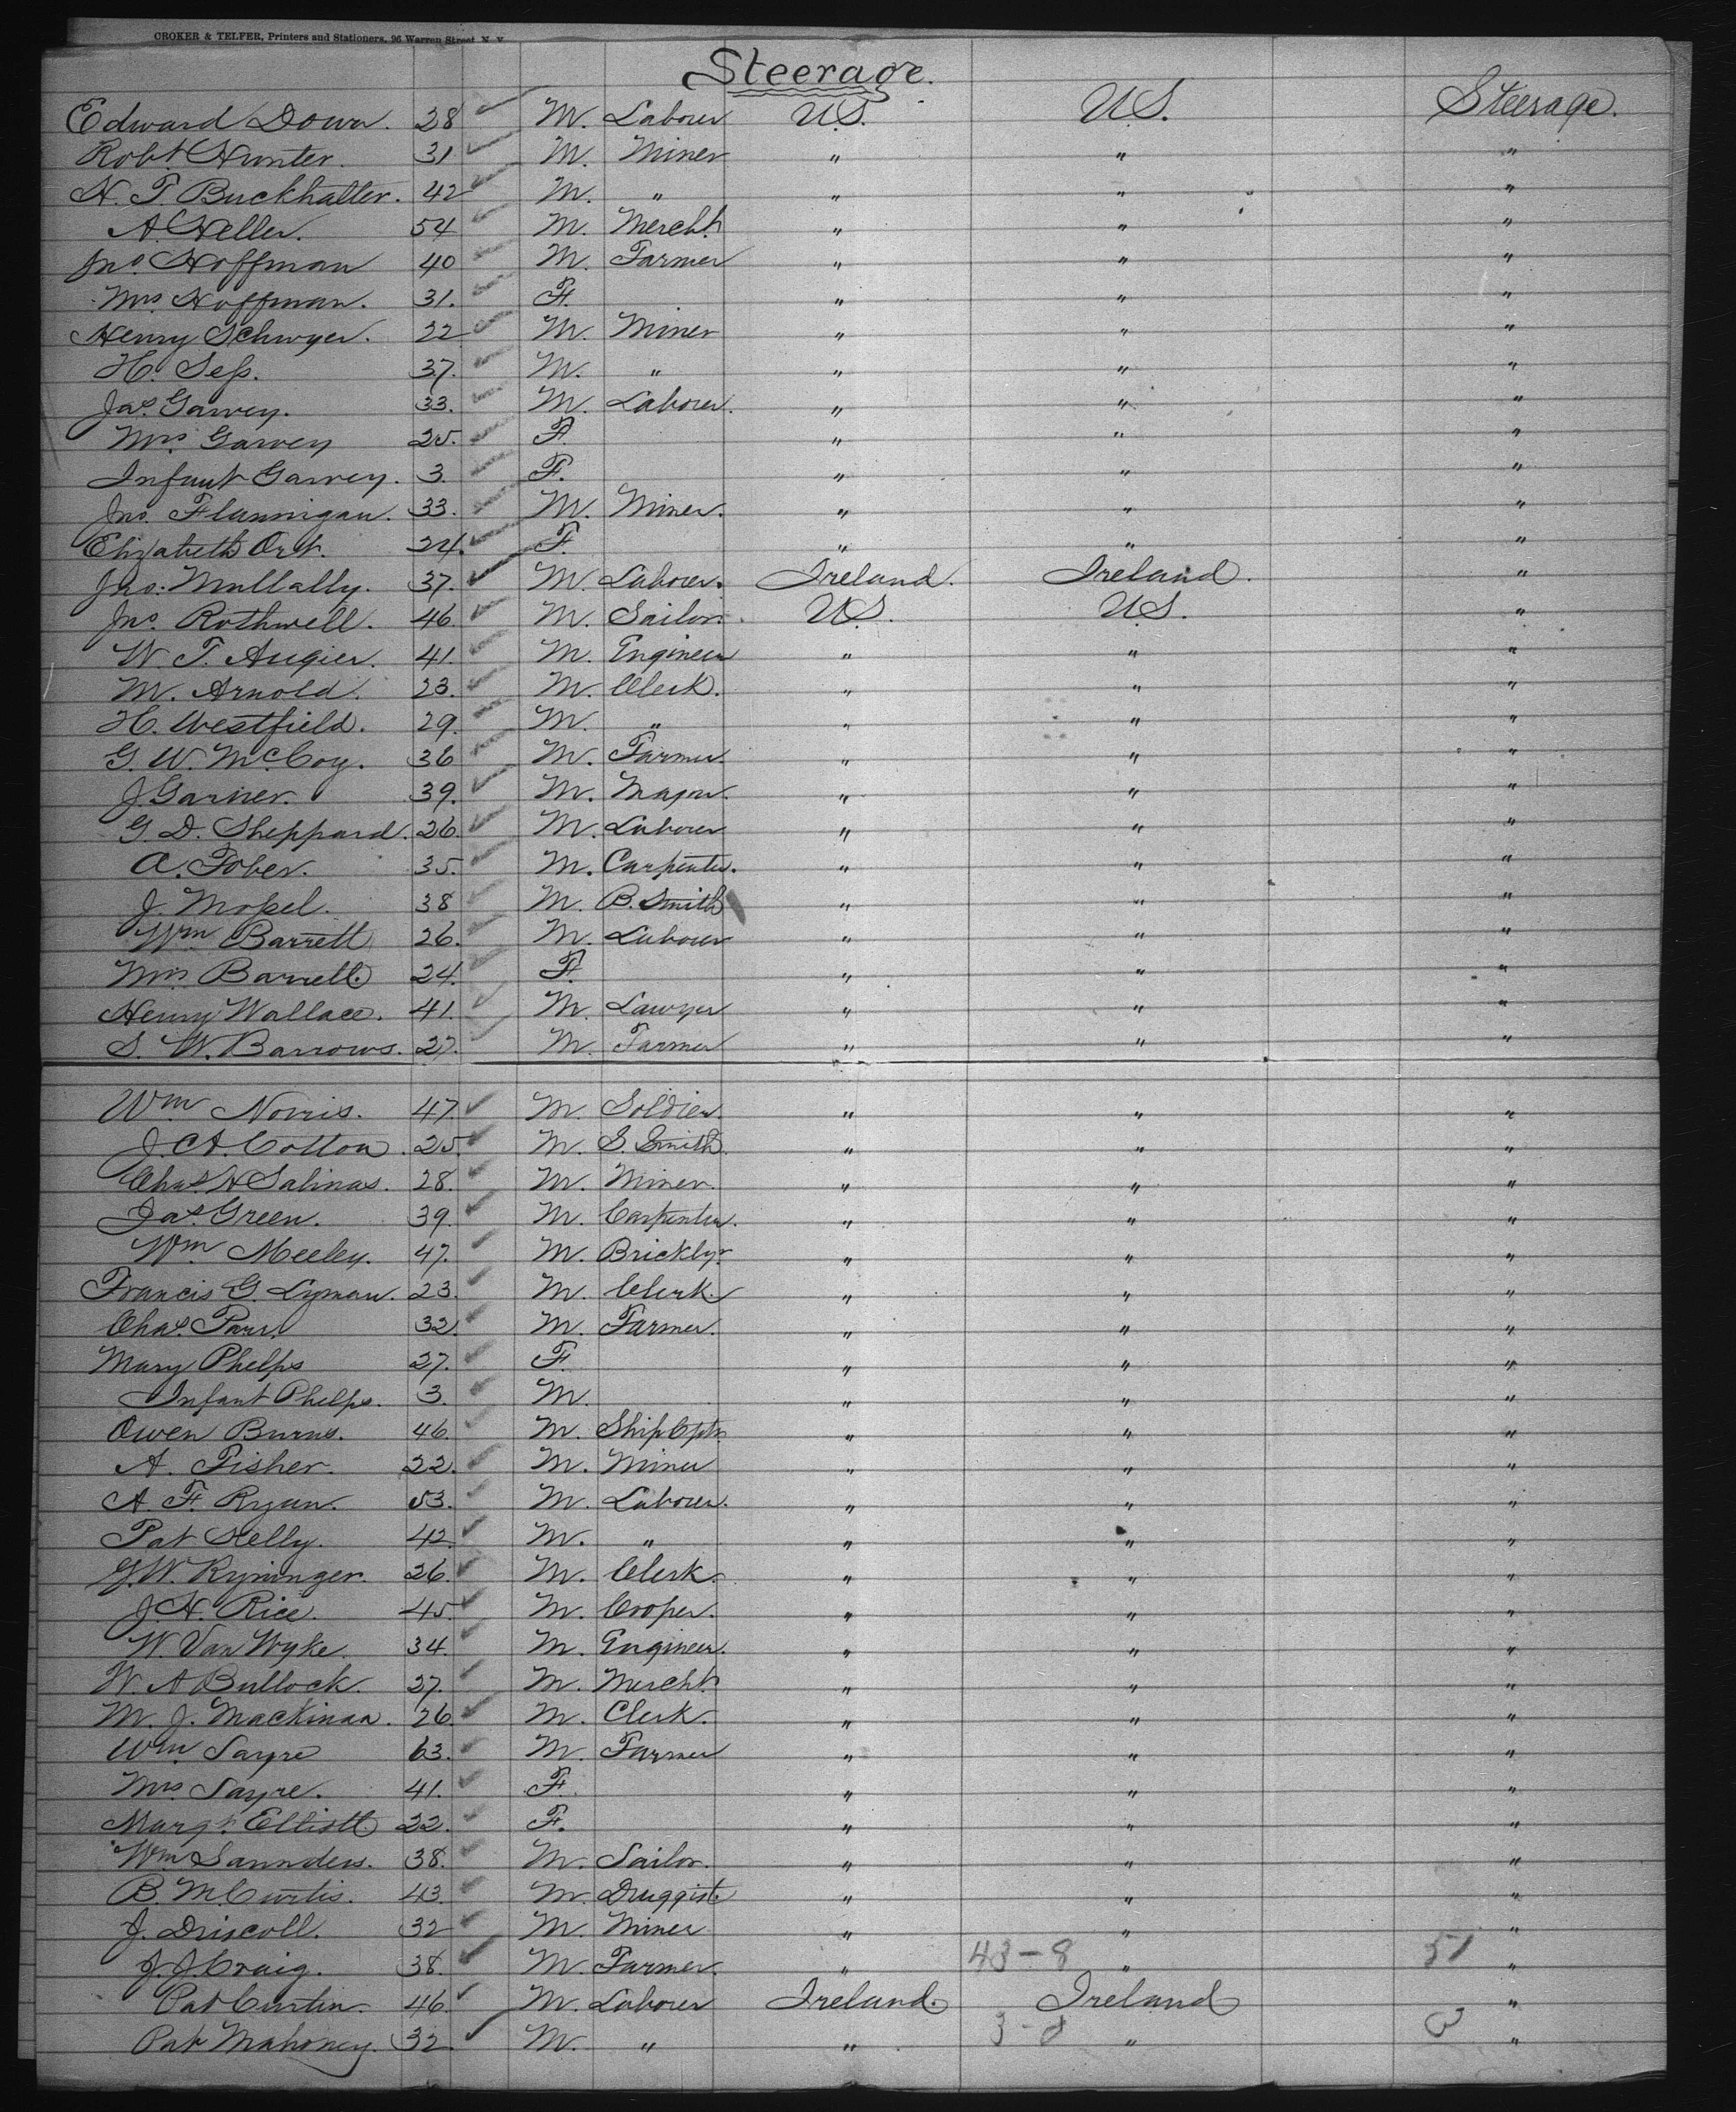 CROKER & TELFER, Printers and Stationers, 96 Warren Street, N. Y.
Steerage.
Edward Down. 28 M. Laborer U.S. U.S. Steerage.
Robt. Hunter. 31 M. Miner " " "
H. T. Buckhalter. 42 M. " " " "
A. Heller. 54 M. Mercht. " " "
Jno. Hoffman 40 M. Farmer " " "
Mrs. Hoffman. 31. F. " " "
Henry Schwyer. 22 M. Miner " " "
H. Sess. 37. M. " " " "
Jas. Garvey. 33. M. Laborer. " " "
Mrs. Garvey 25. F. " " "
Infant Garvey. 3. F. " " "
Jno. Flannigan. 33. M. Miner. " " "
Elizabeth Ort. 24. F. " " "
Jno. Mullally. 37. M. Laborer. Ireland. Ireland. "
Jno. Rothwell. 46. M. Sailor. U.S. U.S. "
W. T. Augier. 41. M. Engineer " " "
M. Arnold. 23. M. Clerk. " " "
H. Westfield. 29. M. " " " "
G. W. McCoy. 36 M. Farmer. " " "
J. Garner. 39. M. Mason. " " "
G. D. Sheppard. 26. M. Laborer " " "
A. Fober. 35. M. Carpenter. " " "
J. Mossel. 38 M. B. Smith " " "
Wm Barrett 26. M. Laborer " " "
Mrs Barrett. 24. F. " " "
Henry Wallace. 41. M. Lawyer " " "
S. W. Barrows. 27. M. Farmer " " "
Wm Norris. 47. M. Soldier. " " "
J. A. Cotton. 25. M. S. Smith. " " "
Chas. H Salinas. 28. M. Miner. " " "
Jas. Green. 39. M. Carpenter. " " "
Wm Meeley. 47. M. Bricklyr. " " "
Francis G. Lyman. 23. M. Clerk. " " "
Chas. Parr. 32. M. Farmer. " " "
Mary Phelps 27. F. " " "
Infant Phelps. 3. M. " " "
Owen Burns. 46. M. Ship Cptn. " " "
A. Fisher. 22. M. Miner " " "
A. F. Ryan. 53. M. Laborer. " " "
Pat Kelly. 42. M. " " " "
G. W. Ryninger. 26. M. Clerk. " " "
J. H. Rice. 45. M. Cooper. " " "
W. Van Wyke. 34. M. Engineer. " " "
W. A Bullock. 27. M. Mercht. " " "
M. J. Mackinaa. 26. M. Clerk. " " "
Wm. Sayre 63. M. Farmer " " "
Mrs Sayre. 41. F. " " "
Margt. Elliott. 22. F. " " "
Wm Saunders. 38. M. Sailor. " " "
B. M. Curtis. 43. M. Druggist. " " "
J. Driscoll. 32 M. Miner " " "
J. J. Craig. 38. M. Farmer. " 43-8 " 51 "
Pat Curtin. 46. M. Laborer Ireland. Ireland "
Pat Mahoney. 32. M. " " 3-0 " 3 "